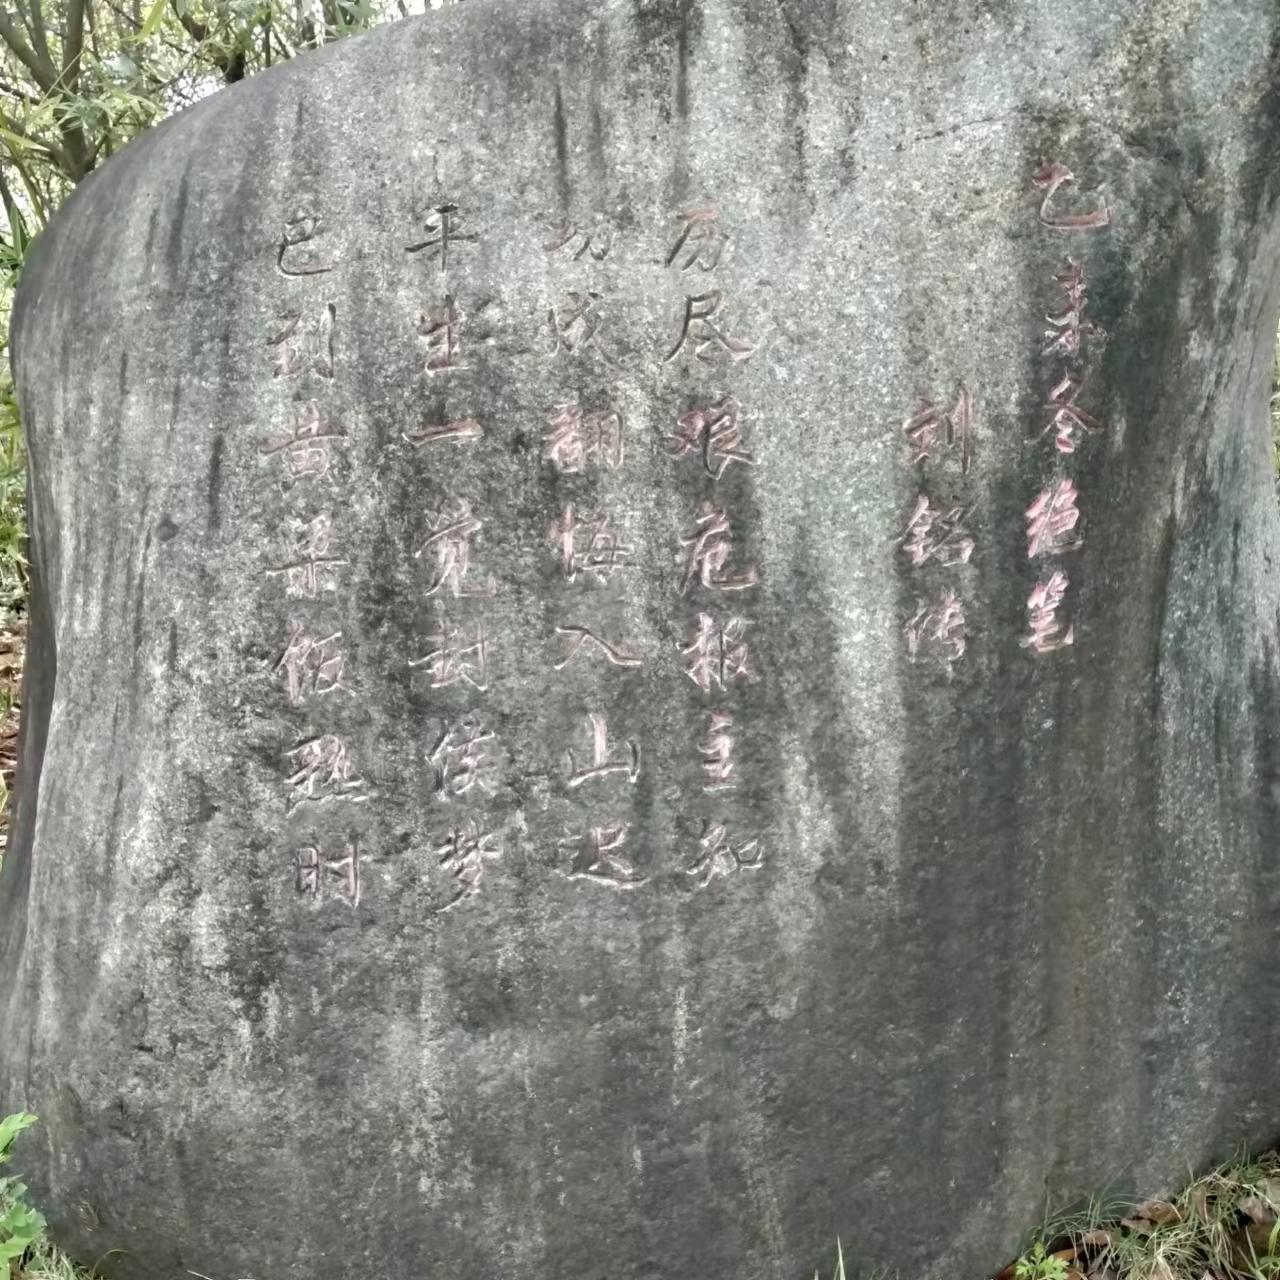 乙未冬绝笔
刘铭传
历尽艰危报主知
功成翻悔入山迟
平生一觉封侯梦
已到黄粱饭熟时